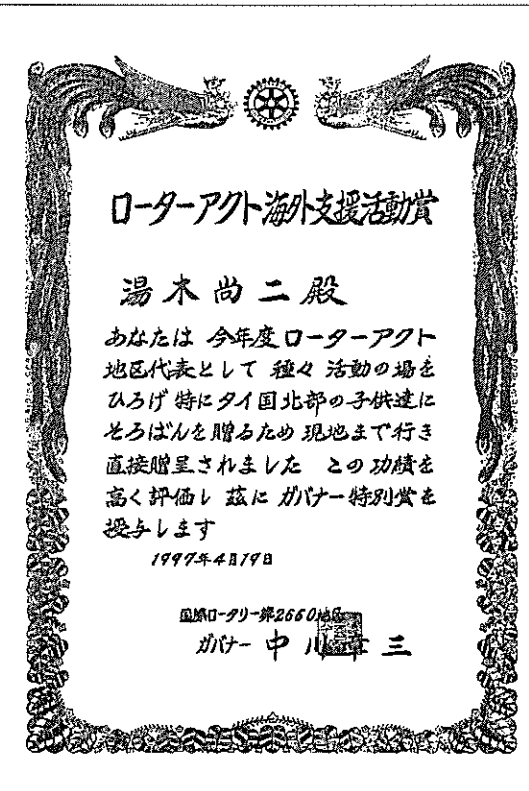 ローターアクト海外支援活動賞
湯木尚二殿
あなたは 今年度ローターアクト
地区代表として 種々 活動の場を
ひろげ 特にタイ国北部の子供達に
そろばんを贈るため 現地まで行き
直接贈呈されました この功績を
高く評価し 茲に ガバナー特別賞を
授与します
1997年4月19日
国際ロータリー第2660地区
ガバナー 中川 三